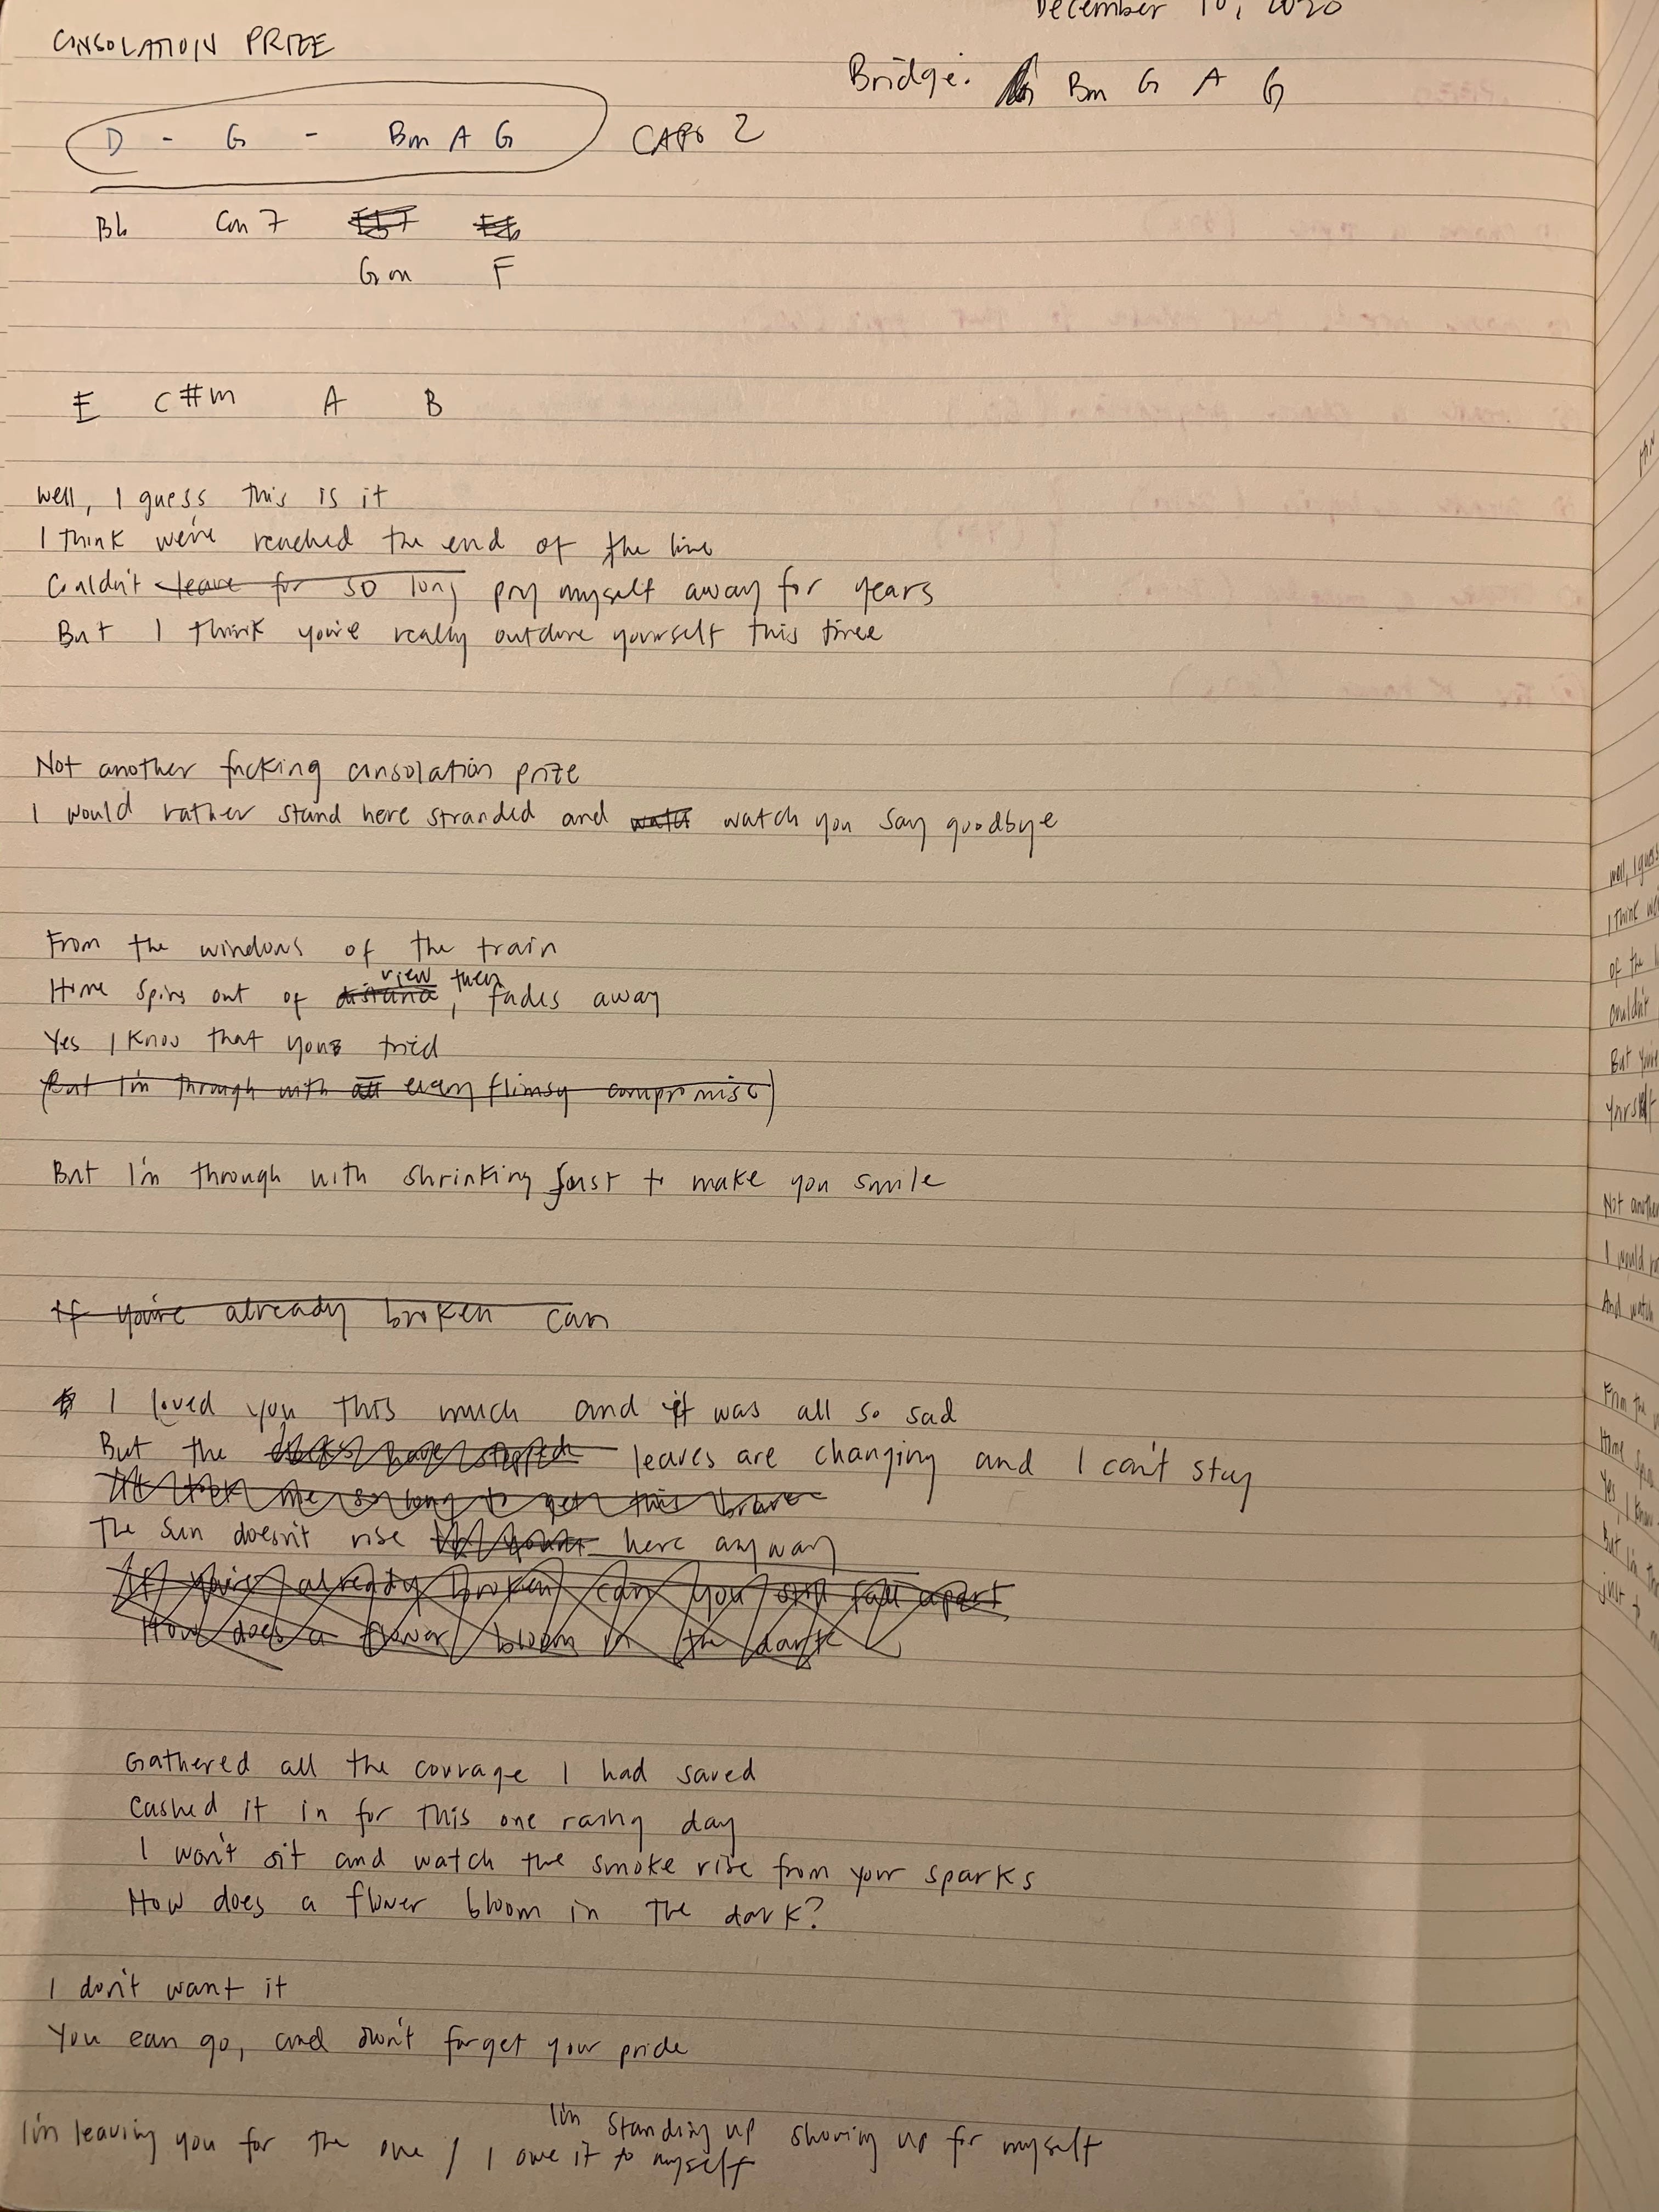 CONSOLATION PRIZE
December 10, 2020
Bridge: Bm G A G
D - G - Bm A G CAPO 2
Bb Cm7 Eb7 Eb
Gm F
E C#m A B
Well, I guess this is it
I think we've reached the end of the line
Couldn't leave for so long pry myself away for years
But I think you've really outdone yourself this time
Not another fucking consolation prize
I would rather stand here stranded and watch watch you say goodbye
From the windows of the train
view then
Home spins out of distance, fades away
Yes I know that you tried
(But I'm through with all every flimsy compromise)
But I'm through with shrinking just to make you smile
If you're already broken can
I loved you this much and it was all so sad
But the clocks have stopped leaves are changing and I can't stay
It took me so long to get this brave
The sun doesn't rise here anyway
If you're already broken can you still fall apart
How does a flower bloom in the dark
Gathered all the courage I had saved
Cashed it in for this one rainy day
I won't sit and watch the smoke rise from your sparks
How does a flower bloom in the dark?
I don't want it
You can go, and don't forget your pride
I'm standing up showing up for myself
I'm leaving you for the one / I owe it to myself
well, I guess
I think we
of the l
couldn't
But you've
yourself
Not another
I would
And watch
From the
Home
Yes, I know
But I'm
just to